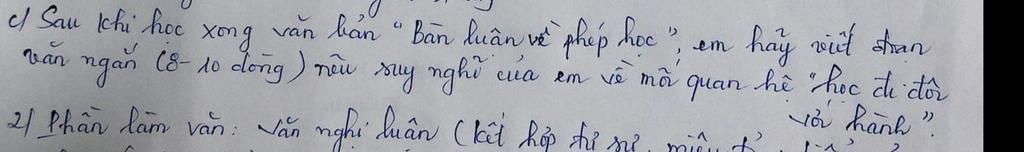 c) Sau khi học xong văn bản "Bàn luận về phép học", em hãy viết đoạn
văn ngắn (8-10 dòng) nêu suy nghĩ của em về mối quan hệ "học đi đôi
với hành".
2) Phần làm văn: Văn nghị luận (kết hợp tự sự, miêu tả